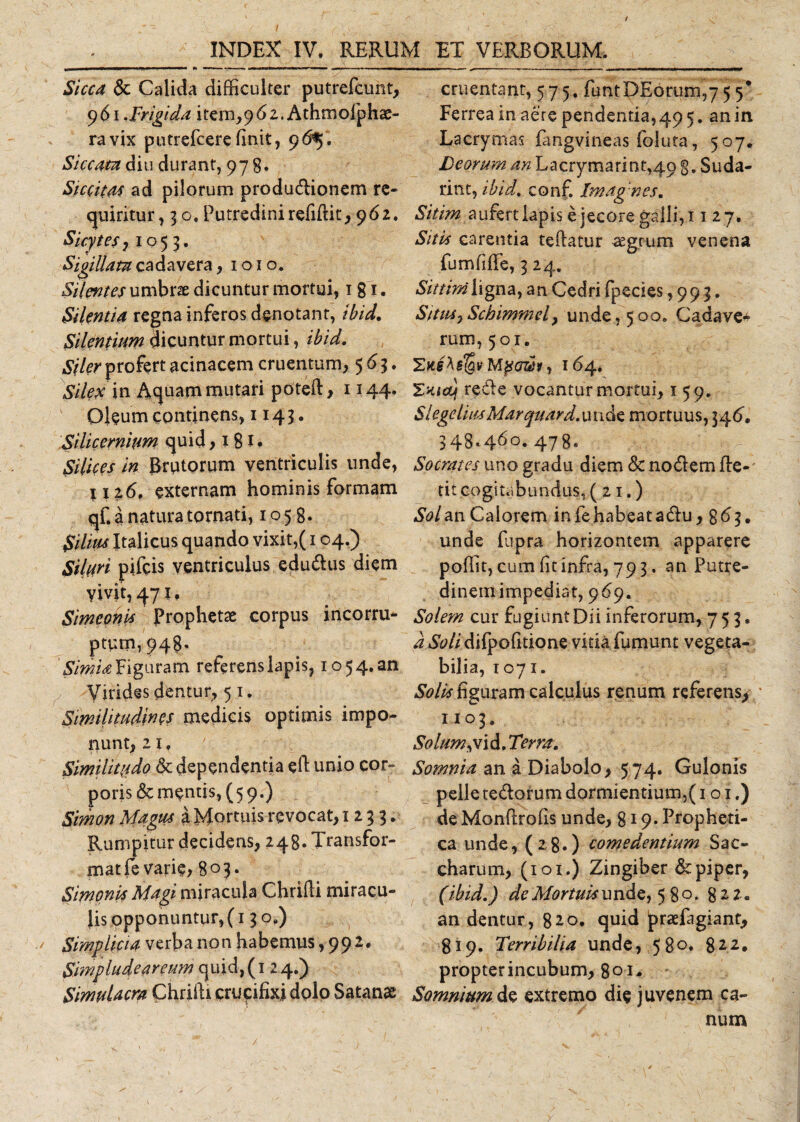 INDEX IV. RERUM ET VERBORUM.
Sicca & Calida difficulter putreſcunt,
961. Frigida item, 962. Athmoſphæ-
ra vix putreſcere ſinit, 965.
Siccata diu durant, 978.
Siccitas ad pilorum productionem re-
quiritur, 30. Putredini reſiſtit, 962.
Sicytes, 1053.
Sigillata cadavera, 1010.
Silentes umbræ dicuntur mortui, 181.
Silentia regna inferos denotant, ibid.
Silentium dicuntur mortui, ibid.
Siler profert acinacem cruentum, 563.
Silex in Aquam mutari poteſt, 1144.
Oleum continens, 1143.
Silicernium quid, 181.
Silices in Brutorum ventriculis unde,
1126. externam hominis formam
qſ. à natura tornati, 1058.
Silius Italicus quando vixit, (104.)
Siluri piſcis ventriculus eductus diem
vivit, 471.
Simeonis Prophetæ corpus incorru-
ptum, 948.
Simiæ Figuram referens lapis, 1054. an
Virides dentur, 51.
Similitudines medicis optimis impo-
nunt, 21.
Similitudo & dependentia eſt unio cor-
poris & mentis, (59.)
Simon Magus à Mortuis revocat, 1233.
Rumpitur decidens, 248. Transfor-
mat ſe varie, 803.
Simonis Magi miracula Chriſti miracu-
lis opponuntur, (130.)
Simplicia verba non habemus, 992.
Simpludeareum quid, (124.)
Simulacra Chriſti crucifixi dolo Satanæ
cruentant, 575. ſunt DEorum, 755*
Ferrea in aëre pendentia, 495. an in
Lacrymas ſangvineas ſoluta, 507.
Deorum an Lacrymarint, 498. Suda-
rint, ibid. conf. Imagines.
Sitim aufert lapis è jecore galli, 1127.
Sitis carentia teſtatur ægrum venena
ſumſiſſe, 324.
Sittim ligna, an Cedri ſpecies, 993.
Situs, Schimmel, unde, 500. Cadave-
rum, 501.
164.
Σκιαὶ recte vocantur mortui, 159.
Slegelius Marquard. unde mortuus, 346.
348. 460. 478.
Socrates uno gradu diem & noctem ſte-
tit cogitabundus, (21.)
Sol an Calorem in ſe habeat actu, 863.
unde ſupra horizontem apparere
poſſit, cum ſit infra, 793. an Putre-
dinem impediat, 969.
Solem cur fugiunt Dii inferorum, 753.
à Soli diſpoſitione vitia ſumunt vegeta-
bilia, 1071.
Solis figuram calculus renum referens,
1103.
Solum, vid. Terra.
Somnia an à Diabolo, 574. Gulonis
pelle tectorum dormientium, (101.)
de Monſtroſis unde, 819. Propheti-
ca unde, (28.) comedentium Sac-
charum, (101.) Zingiber & piper,
(ibid.) de Mortuis unde, 580. 822.
an dentur, 820. quid præſagiant,
819. Terribilia unde, 580. 822.
propter incubum, 801.
Somnium de extremo die juvenem ca-
num